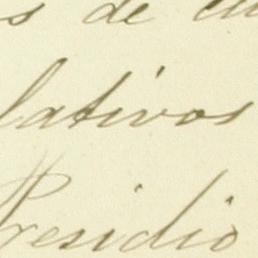 s de cu
lativos
Presidio